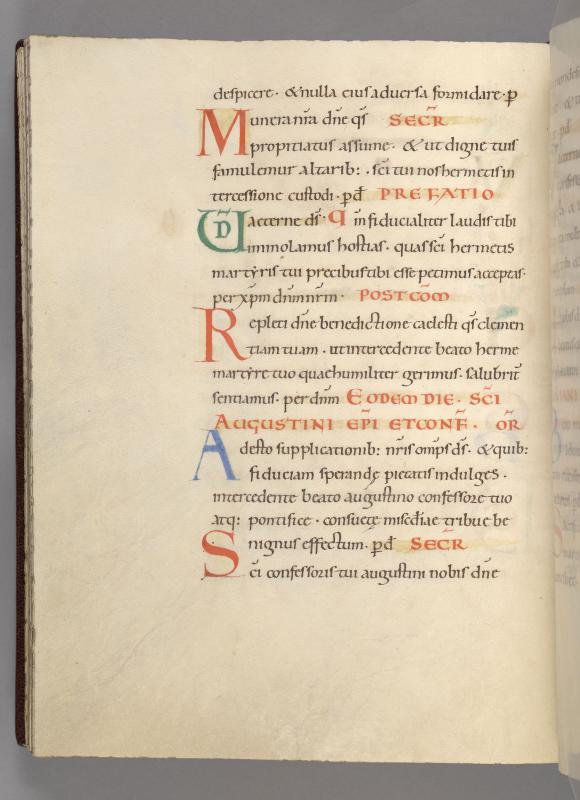 despicere· & nulla eius aduersa formidare· p
Munera nr̄a dn̄e qs̄ SECR̄
propitiatus assume· & ut digne tuis
famulemur altarib:· sc̄i tui nos hermetis in
tercessione custodi· pd̄ PREFATIO
UD̄ aeterne ds̄· q in fiducialiter laudis tibi
immolamus hostias· quas sc̄i hermetis
martyris tui precibus tibi esse petimus acceptas·
per xp̄m dn̄m nr̄m· POSTCOM̄
Repleti dn̄e benedictione caelesti qs̄ clemen
tiam tuam· ut intercedente beato herme
martyre tuo quae humiliter gerimus· salubrit̄
sentiamus· per dn̄m EODEM DIE· SC̄I
AUGUSTINI EPĪ ET CONF̄· OR̄
Adesto supplicationib: nr̄is omp̄s ds̄· & quib:
fiduciam sperandę pietatis indulges·
intercedente beato augustino confessore tuo
atq: pontifice· consuetę misc̄diae tribue be
nignus effectum· pd̄ SECR̄
Sc̄i confessoris tui augustini nobis dn̄e